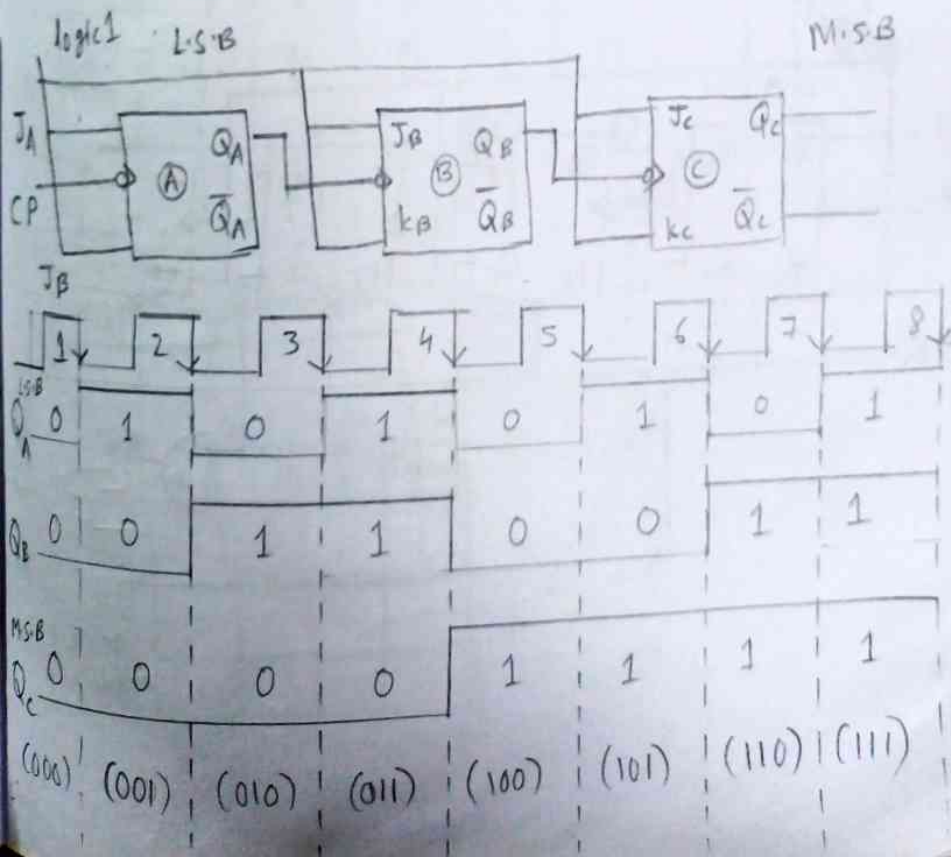 logic1 L.S.B M.S.B
JA QA JB QB JC QC
CP A B C
Q̅A kB Q̅B kC Q̅C
JB
1 2 3 4 5 6 7 8
L.S.B
QA 0 1 0 1 0 1 0 1
QB 0 0 1 1 0 0 1 1
M.S.B
QC 0 0 0 0 1 1 1 1
(000) (001) (010) (011) (100) (101) (110) (111)